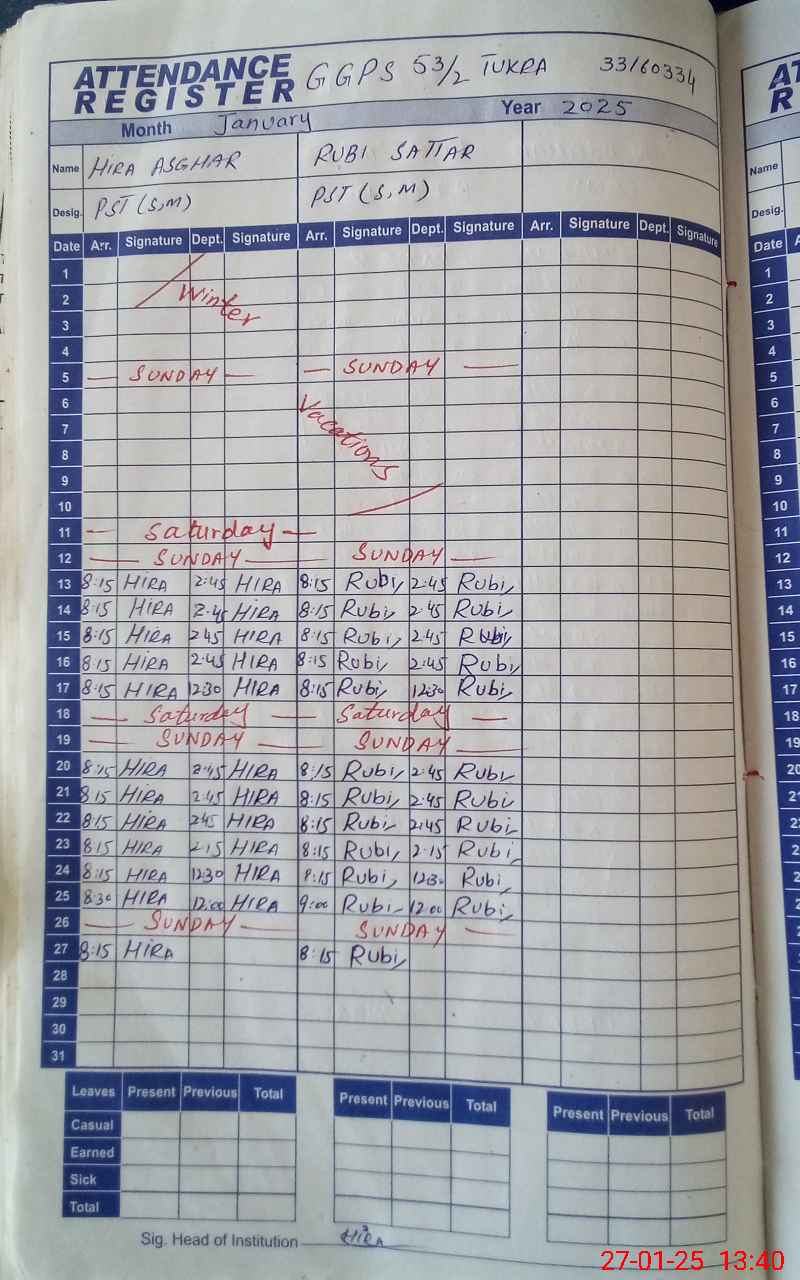 ATTENDANCE REGISTER GGPS 53/2 TUKRA 33160334
Month January Year 2025
Name HIRA ASGHAR RUBI SATTAR
Desig. PST (S,M) PST (S,M)
Date Arr. Signature Dept. Signature Arr. Signature Dept. Signature Arr. Signature Dept. Signature
1
2 Winter
3
4
5 SUNDAY SUNDAY
6
7 Vacations
8
9
10
11 Saturday
12 SUNDAY SUNDAY
13 8:15 HIRA 2:45 HIRA 8:15 Rubi 2:45 Rubi
14 8:15 HIRA 2:45 HIRA 8:15 Rubi 2:45 Rubi
15 8:15 HIRA 245 HIRA 8:15 Rubi 2:45 Rubi
16 8:15 HIRA 2:45 HIRA 8:15 Rubi 2:45 Rubi
17 8:15 HIRA 12:30 HIRA 8:15 Rubi 12:30 Rubi
18 Saturday Saturday
19 SUNDAY SUNDAY
20 8:15 HIRA 2:45 HIRA 8:15 Rubi 2:45 Rubi
21 8:15 HIRA 2:45 HIRA 8:15 Rubi 2:45 Rubi
22 8:15 HIRA 2:45 HIRA 8:15 Rubi 2:45 Rubi
23 8:15 HIRA 2:15 HIRA 8:15 Rubi 2:15 Rubi
24 8:15 HIRA 12:30 HIRA 8:15 Rubi 12:30 Rubi
25 8:30 HIRA 12:00 HIRA 9:00 Rubi 12:00 Rubi
26 SUNDAY SUNDAY
27 8:15 HIRA 8:15 Rubi
28
29
30
31
Leaves Present Previous Total Present Previous Total Present Previous Total
Casual
Earned
Sick
Total
Sig. Head of Institution HIRA
Name
Desig.
Date
1
2
3
4
5
6
7
8
9
10
11
12
13
14
15
16
17
18
19
27-01-25 13:40